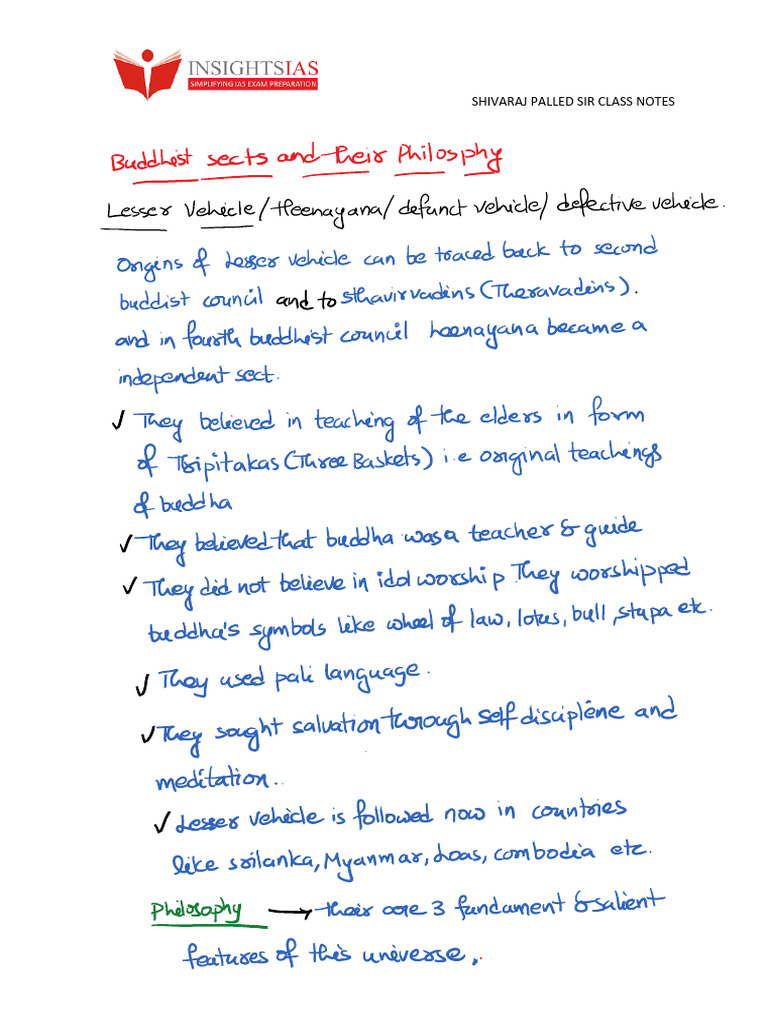 INSIGHTSIAS
SIMPLIFYING IAS EXAM PREPARATION
SHIVARAJ PALLED SIR CLASS NOTES
Buddhist sects and their Philosphy
Lesser Vehicle/Heenayana/defunct vehicle/defective vehicle.
Origins of Lesser vehicle can be traced back to second
buddist council and to sthavirvadins (Theravadins).
and in fourth buddhist council heenayana became a
independent sect.
✓ They believed in teaching of the elders in form
of Tripitakas (Three Baskets) i.e original teachings
of buddha
✓ They believed that buddha was a teacher & guide
✓ They did not believe in idol worship They worshipped
buddha's symbols like wheel of law, lotus, bull, stupa etc.
✓ They used pali language.
✓ They sought salvation through self disciplene and
meditation..
✓ Lesser vehicle is followed now in countries
like srilanka, Myanmar, Loas, combodia etc.
Philosophy → their core 3 fundament & salient
features of this universe,.